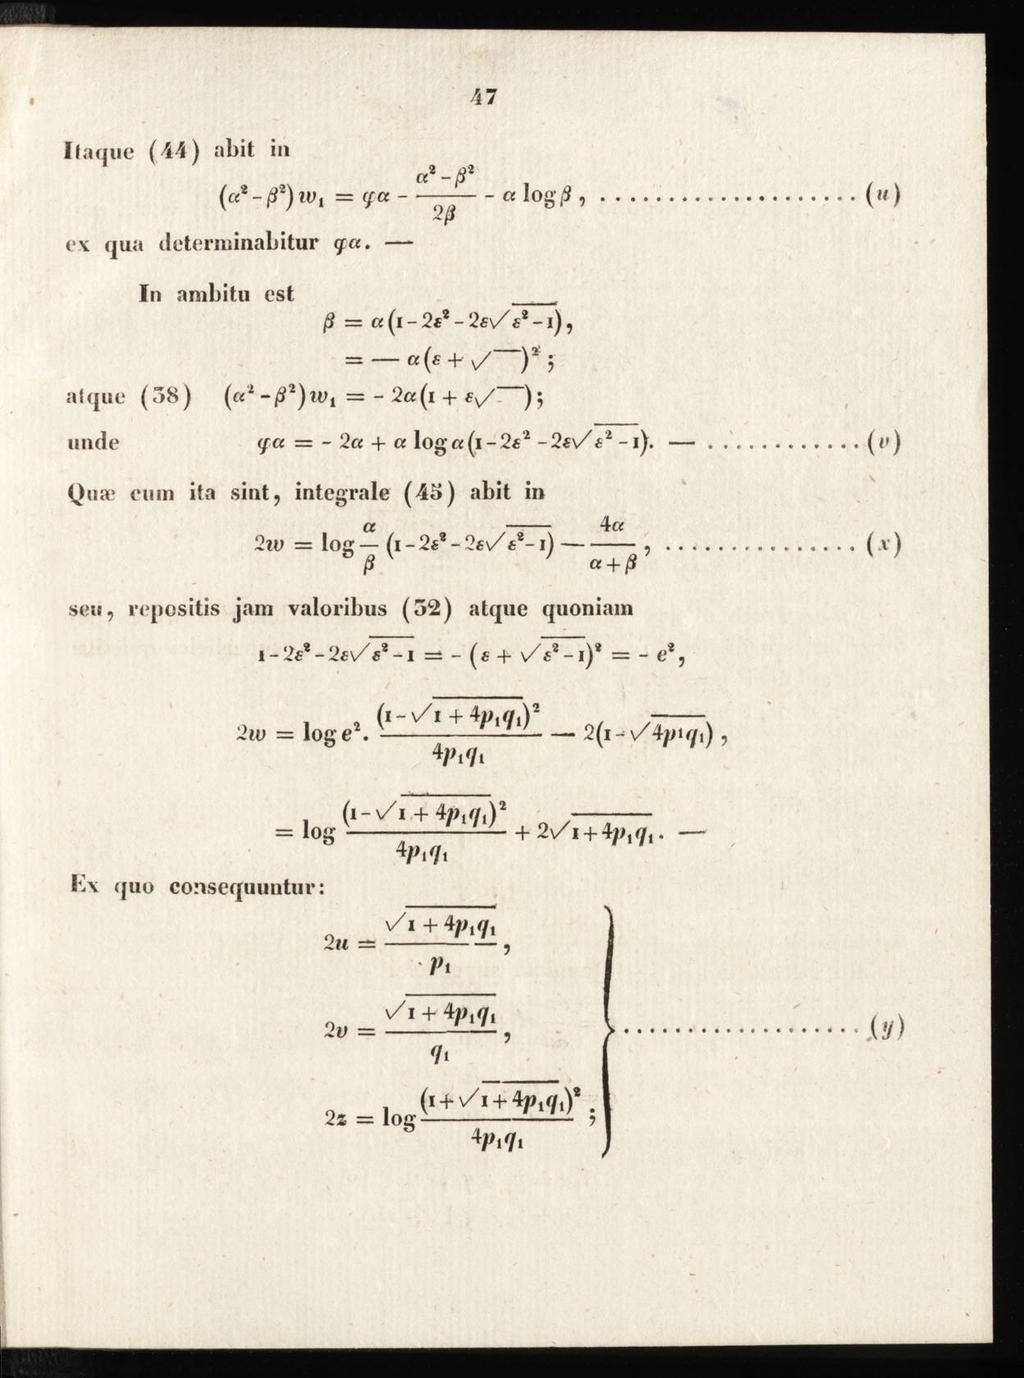 47
Itaque (44) abit in
(α²-β²)w₁ = φα - (α²-β²)/2β - α log β , .................... (u)
ex qua determinabitur φα. —
In ambitu est
β = α(1-2ε²-2ε√ε²-1),
= — α(ε + √‾‾)² ;
atque (38) (α²-β²)w₁ = - 2α(1 + ε√‾‾);
unde φα = - 2α + α log α(1-2ε²-2ε√ε²-1). — ............. (v)
Quæ cum ita sint, integrale (45) abit in
2w = log α/β (1-2ε²-2ε√ε²-1) — 4α/(α+β) , ............... (x)
seu, repositis jam valoribus (32) atque quoniam
1-2ε²-2ε√ε²-1 = - (ε + √ε²-1)² = - e²,
2w = log e². (1-√1+4p₁q₁)²/4p₁q₁ — 2(1-√4p¹q₁) ,
= log (1-√1+4p₁q₁)²/4p₁q₁ + 2√1+4p₁q₁. —
Ex quo consequuntur:
2u = √1+4p₁q₁/p₁ ,
2v = √1+4p₁q₁/q₁ , .................... (y)
2z = log (1+√1+4p₁q₁)²/4p₁q₁ ;